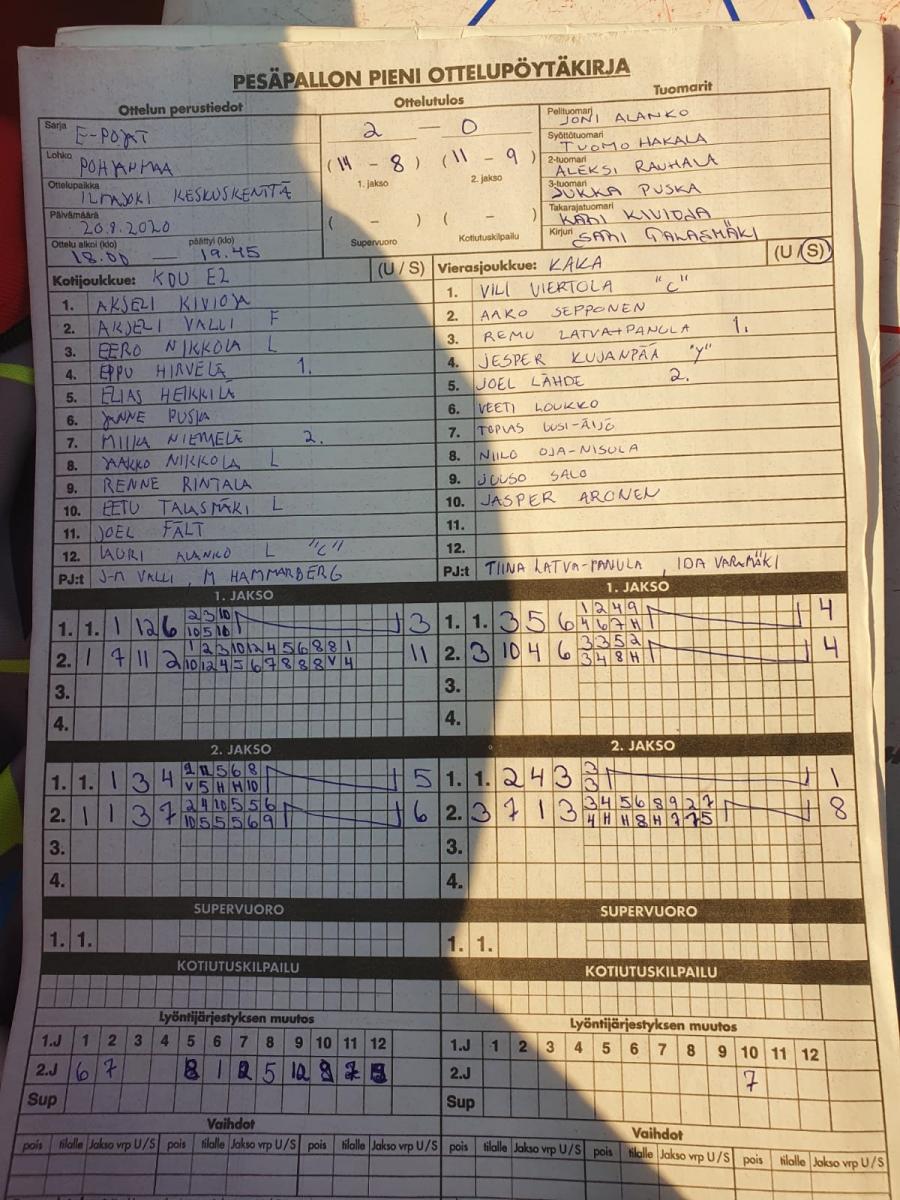 PESÄPALLON PIENI OTTELUPÖYTÄKIRJA
Ottelun perustiedot
Ottelutulos
Tuomarit
Sarja E-POJAT
Lohko POHJANMAA
Ottelupaikka ILMAJOKI KESKUSKENTTÄ
Päivämäärä 20.8.2020
Ottelu alkoi (klo) päättyi (klo)
18.00 — 19.45
2 — 0
(14 - 8) (11 - 9)
1. jakso 2. jakso
( - ) ( - )
Supervuoro Kotiutuskilpailu
Pelituomari JONI ALANKO
Syöttötuomari TUOMO HAKALA
2-tuomari ALEKSI RAUHALA
3-tuomari JUKKA PUSKA
Takarajatuomari KARI KIVIOJA
Kirjuri SARI TALASMÄKI
Kotijoukkue: KOU E2 (U / S)
1. AKSELI KIVIOJA
2. AKSELI VALLI F
3. EERO NIKKOLA L
4. EPPU HIRVELÄ 1.
5. ELIAS HEIKKILÄ
6. JANNE PUSKA
7. MIIKA NIEMELÄ 2.
8. JAAKKO NIKKOLA L
9. RENNE RINTALA
10. EETU TALASMÄKI L
11. JOEL FÄLT
12. LAURI ALANKO L "C"
PJ:t J-M VALLI, M HAMMARBERG
Vierasjoukkue: KAKA (U / S)
1. VILI VIERTOLA "C"
2. AAKO SEPPONEN
3. REMU LATVA-PANULA 1.
4. JESPER KUJANPÄÄ "Y"
5. JOEL LÄHDE 2.
6. VEETI LOUKKO
7. TOPIAS UUSI-ÄIJÖ
8. NIILO OJA-NISULA
9. JUUSO SALO
10. JASPER ARONEN
11.
12.
PJ:t TIINA LATVA-PANULA, IDA VARAMÄKI
1. JAKSO
1. 1. 1 12 6 2 3 10 3
10 5 10
2. 1 7 11 2 1 2 3 10 12 4 5 6 8 8 1 11
10 12 4 5 6 7 8 8 8 V 4
3.
4.
1. JAKSO
1. 1. 3 5 6 1 2 4 9 4
4 6 7 H
2. 3 10 4 6 3 3 5 2 4
3 4 8 H
3.
4.
2. JAKSO
1. 1. 1 3 4 5 6 8 5
V 5 H H 10
2. 1 1 3 7 2 4 10 5 5 6 6
10 5 5 5 6 9
3.
4.
2. JAKSO
1. 1. 2 4 3 3 3 1
3
2. 3 7 1 3 3 4 5 6 8 9 2 7 8
4 H H 8 H 7 5
3.
4.
SUPERVUORO
1. 1.
SUPERVUORO
1. 1.
KOTIUTUSKILPAILU
KOTIUTUSKILPAILU
Lyöntijärjestyksen muutos
1.J 1 2 3 4 5 6 7 8 9 10 11 12
2.J 6 7 8 1 5
Sup
Lyöntijärjestyksen muutos
1.J 1 2 3 4 5 6 7 8 9 10 11 12
2.J 7
Sup
Vaihdot
pois tilalle Jakso vrp U / S pois tilalle Jakso vrp U / S pois tilalle Jakso vrp U / S
Vaihdot
pois tilalle Jakso vrp U / S pois tilalle Jakso vrp U / S pois tilalle Jakso vrp U / S